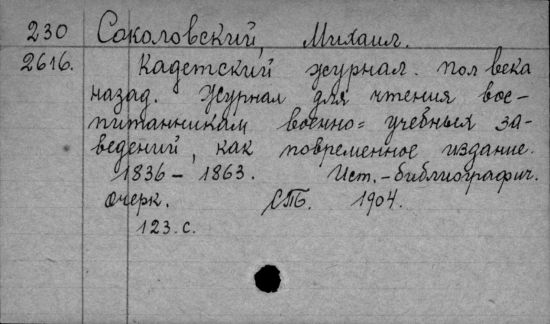 230 Соколовский, Михаил.
2616. Кадетский журнал. пол века
назад. Журнал для чтения вос-
питанникам военно= учебных за-
ведений, как повременное издание.
1836 – 1863. Ист.-библиографич.
очерк. СПБ. 1904.
123. с.